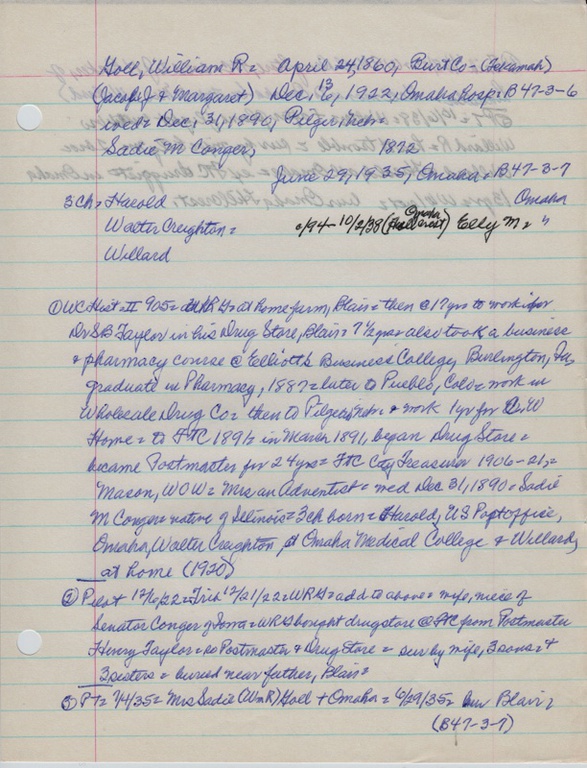 Goll, William R = April 24, 1860, Burt Co - (Tekamah)
(Jacob J & Margaret) Dec, 13, 1922, Omaha Hosp = B47-3-6
wed = Dec, 31, 1890, Pilger, Neb =
Sadie M Conger, 1872
June 29, 1935, Omaha = B47-3-7
3 ch = Harold Omaha
Walter Creighton = c/94 - 10/2/38 (Omaha Hillcrest) Elly M = "
Willard
① WC Hist = II 905 = WRG = at home farm, Blair = then @ 17 yrs to work for
Dr SB Taylor in his Drug Store, Blair = 7½ yrs = also took a business
& pharmacy course @ Elliotts Business College, Burlington, Ia,
graduate in Pharmacy, 1887 = later to Pueblo, Colo = work in
Wholesale Drug Co = then to Pilger, Neb & work 1 yr for W
Home = to FTC 1891 = in March 1891, began Drug Store =
became Postmaster for 24 yrs = FtC City Treasurer 1906-21, =
Mason, WOW = Mrs an Adventist = wed Dec 31, 1890 = Sadie
M Conger = native of Illinois = 3 ch born = Harold, US Postoffice,
Omaha, Walter Creighton, at Omaha Medical College & Willard,
at home (1920)
② Pilot 12/6/22 = Trib 12/21/22 = WRG = add to above = wife, niece of
Senator Conger of Iowa = WRG bought drugstore @ FtC from Postmaster
Henry Taylor = so Postmaster & Drug Store = sur by wife, 3 sons = &
3 sisters = buried near father, Blair =
③ PT = 7/4/35 = Mrs Sadie (Wm R) Goll + Omaha = 6/29/35 = bur Blair =
(B47-3-7)